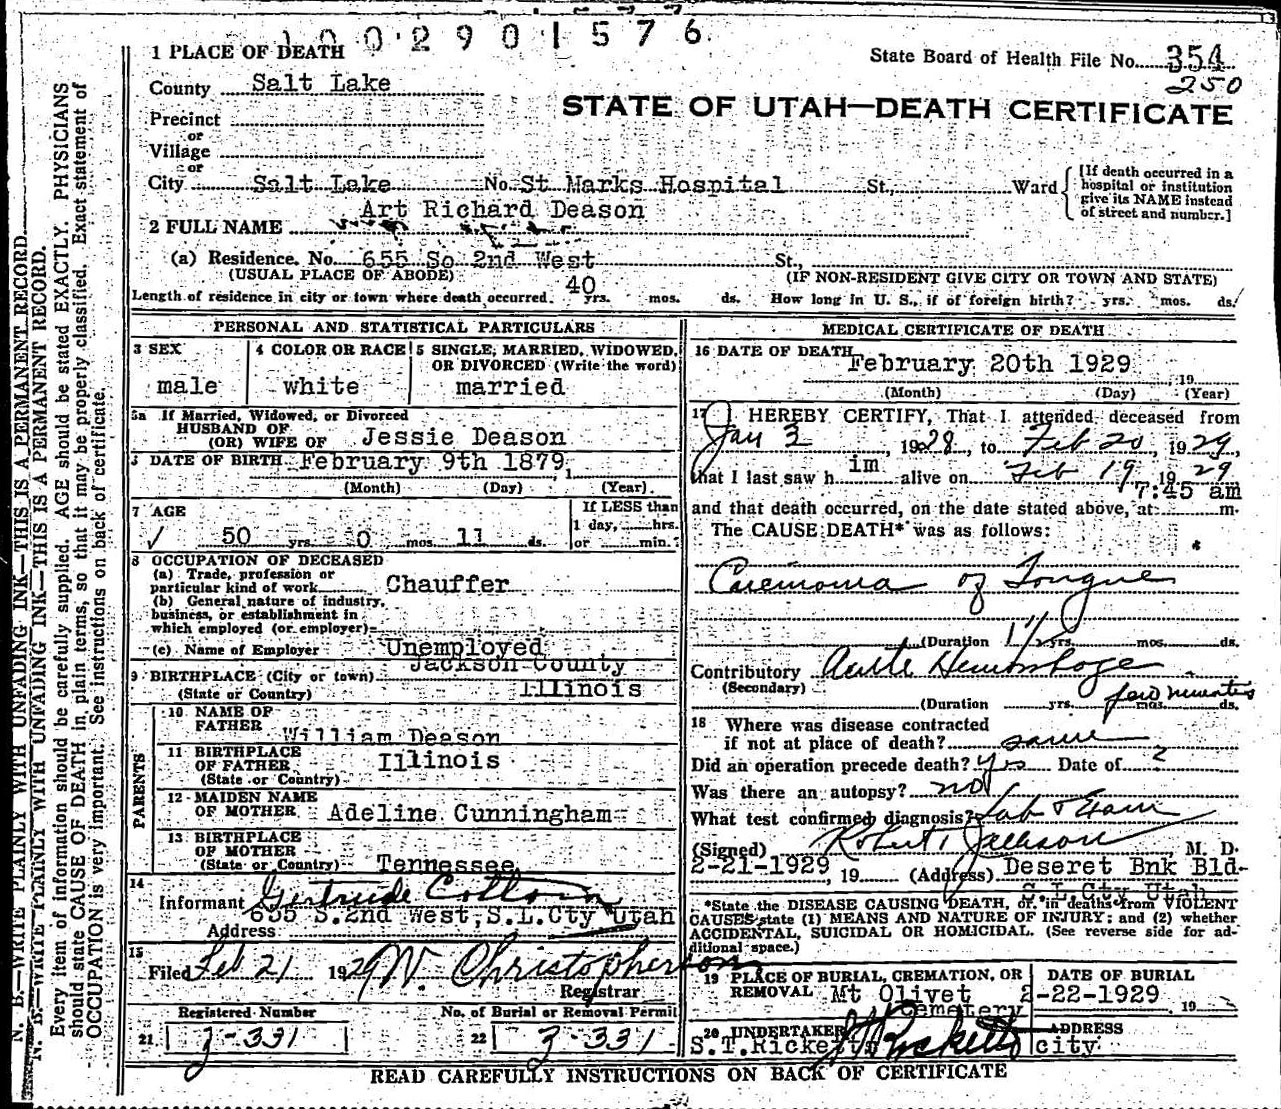 1002901576
1 PLACE OF DEATH
State Board of Health File No. 354
250
County Salt Lake
STATE OF UTAH—DEATH CERTIFICATE
Precinct
or
Village
or
City Salt Lake No. St Marks Hospital St., Ward
[If death occurred in a hospital or institution give its NAME instead of street and number.]
Art Richard Deason
2 FULL NAME
(a) Residence. No. 655 So 2nd West St.,
(USUAL PLACE OF ABODE) (IF NON-RESIDENT GIVE CITY OR TOWN AND STATE)
Length of residence in city or town where death occurred. 40 yrs. mos. ds. How long in U. S., if of foreign birth? yrs. mos. ds.
PERSONAL AND STATISTICAL PARTICULARS
3 SEX 4 COLOR OR RACE 5 SINGLE, MARRIED, WIDOWED, OR DIVORCED (Write the word)
male white married
5a If Married, Widowed, or Divorced
HUSBAND OF
(OR) WIFE OF Jessie Deason
DATE OF BIRTH February 9th 1879, 1
(Month) (Day) (Year)
7 AGE If LESS than
1 day, hrs.
50 yrs. 0 mos. 11 ds. or min.
8 OCCUPATION OF DECEASED
(a) Trade, profession or
particular kind of work Chauffer
(b) General nature of industry,
business, or establishment in
which employed (or employer)
(c) Name of Employer Unemployed
Jackson County
9 BIRTHPLACE (City or town)
(State or Country) Illinois
PARENTS
10 NAME OF
FATHER William Deason
11 BIRTHPLACE
OF FATHER Illinois
(State or Country)
12 MAIDEN NAME
OF MOTHER Adeline Cunningham
13 BIRTHPLACE
OF MOTHER
(State or Country) Tennessee
14
Informant Gertrude
655 S.2nd West, S.L.Cty Utah
Address
15
Filed Feb 21 1929 W. Christopherson
Registrar
Registered Number No. of Burial or Removal Permit
21 J-331 22 J-331
MEDICAL CERTIFICATE OF DEATH
16 DATE OF DEATH February 20th 1929, 19
(Month) (Day) (Year)
17 I HEREBY CERTIFY, That I attended deceased from
Jan 3, 1928, to Feb 20, 1929,
that I last saw him alive on Feb 19 1929
7:45 am
and that death occurred, on the date stated above, at m.
The CAUSE DEATH* was as follows:
Carcinoma of Tongue
(Duration 1 1/2 yrs. mos. ds.
Contributory Acute Hemorrhage
(Secondary)
few minutes
(Duration yrs. mos. ds.
18 Where was disease contracted
if not at place of death? same
Did an operation precede death? yes Date of ?
Was there an autopsy? no
What test confirmed diagnosis? Lab & Exam
(Signed) Robert Jellison, M. D.
2-21-1929, 19 (Address) Deseret Bnk Bld-
S.L.Cty Utah
*State the DISEASE CAUSING DEATH, or in deaths from VIOLENT
CAUSES state (1) MEANS AND NATURE OF INJURY; and (2) whether
ACCIDENTAL, SUICIDAL OR HOMICIDAL. (See reverse side for ad-
ditional space.)
19 PLACE OF BURIAL, CREMATION, OR DATE OF BURIAL
REMOVAL Mt Olivet 2-22-1929 19
Cemetery
20 UNDERTAKER ADDRESS
S.T.Ricketts city
READ CAREFULLY INSTRUCTIONS ON BACK OF CERTIFICATE
N. B.—WRITE PLAINLY WITH UNFADING INK—THIS IS A PERMANENT RECORD.
N. B.—WRITE PLAINLY WITH UNFADING INK—THIS IS A PERMANENT RECORD.
Every item of information should be carefully supplied. AGE should be stated EXACTLY. PHYSICIANS
should state CAUSE OF DEATH in plain terms, so that it may be properly classified. Exact statement of
OCCUPATION is very important. See instructions on back of certificate.